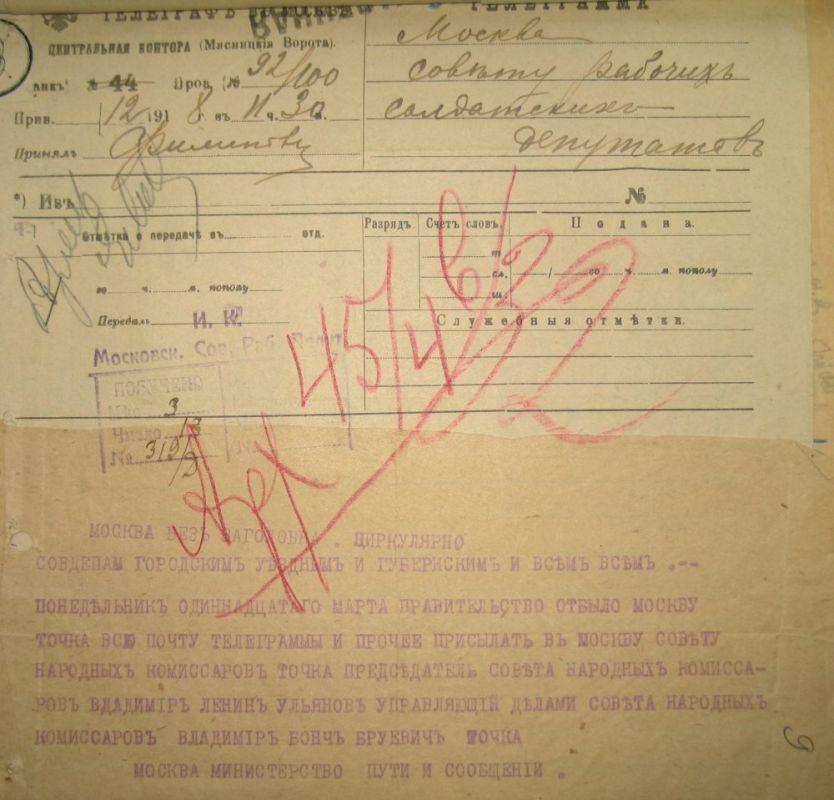 ТЕЛЕГРАФЪ ВЪ МОСКВѢ ТЕЛЕГРАММА
ЦЕНТРАЛЬНАЯ КОНТОРА (Мясницкія Ворота).
Москва
№ 44 Пров. (№ 92/100
совѣту рабочихъ
Прин. 12 1918 г. въ 11 ч. 30 м.
солдатскихъ
Принялъ
депутатовъ
*) Изъ №
Отмѣтка о передачѣ въ отд.
Разрядъ. Счетъ словъ. Подана.
го ч. м. пополу
сл. / го ч. м. пополу
Передалъ И. К.
Служебныя отмѣтки.
45/46
Московск. Сов. Раб. Депут.
ПОЛУЧЕНО
3
Число 13
№ 319/2
МОСКВА БЕЗЪ ЗАГОЛОВКА . ЦИРКУЛЯРНО
СОВДЕПАМ ГОРОДСКИМЪ УѢЗДНЫМЪ И ГУБЕРНСКИМЪ И ВСѢМЪ ВСѢМЪ .--
ПОНЕДѢЛЬНИКЪ ОДИННАДЦАТАГО МАРТА ПРАВИТЕЛЬСТВО ОТБЫЛО МОСКВУ
ТОЧКА ВСЮ ПОЧТУ ТЕЛЕГРАММЫ И ПРОЧЕЕ ПРИСЫЛАТЬ ВЪ МОСКВУ СОВѢТУ
НАРОДНЫХЪ КОМИССАРОВЪ ТОЧКА ПРЕДСѢДАТЕЛЬ СОВѢТА НАРОДНЫХЪ КОМИССА-
РОВЪ ВДАДИМІРЪ ЛЕНИНЪ УЛЬЯНОВЪ УПРАВЛЯЮЩІЙ ДѢЛАМИ СОВѢТА НАРОДНЫХЪ
КОМИССАРОВЪ ВЛАДИМІРЪ БОНЧЪ БРУЕВИЧЪ ТОЧКА
МОСКВА МИНИСТЕРСТВО ПУТИ И СООБЩЕНІИ .